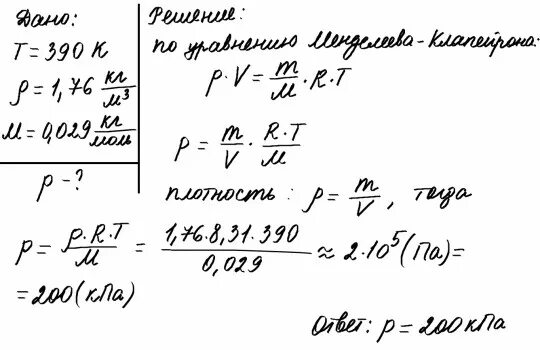 Дано:
T = 390 К
ρ = 1,76 кг/м³
M = 0,029 кг/моль
p - ?
Решение:
по уравнению Менделеева-Клапейрона:
p · V = m/M · R · T
p = m/V · R · T/M
плотность : ρ = m/V, тогда
p = ρ · R · T/M = 1,76 · 8,31 · 390/0,029 ≈ 2 · 10⁵ (Па) =
= 200 (кПа)
Ответ: p = 200 кПа